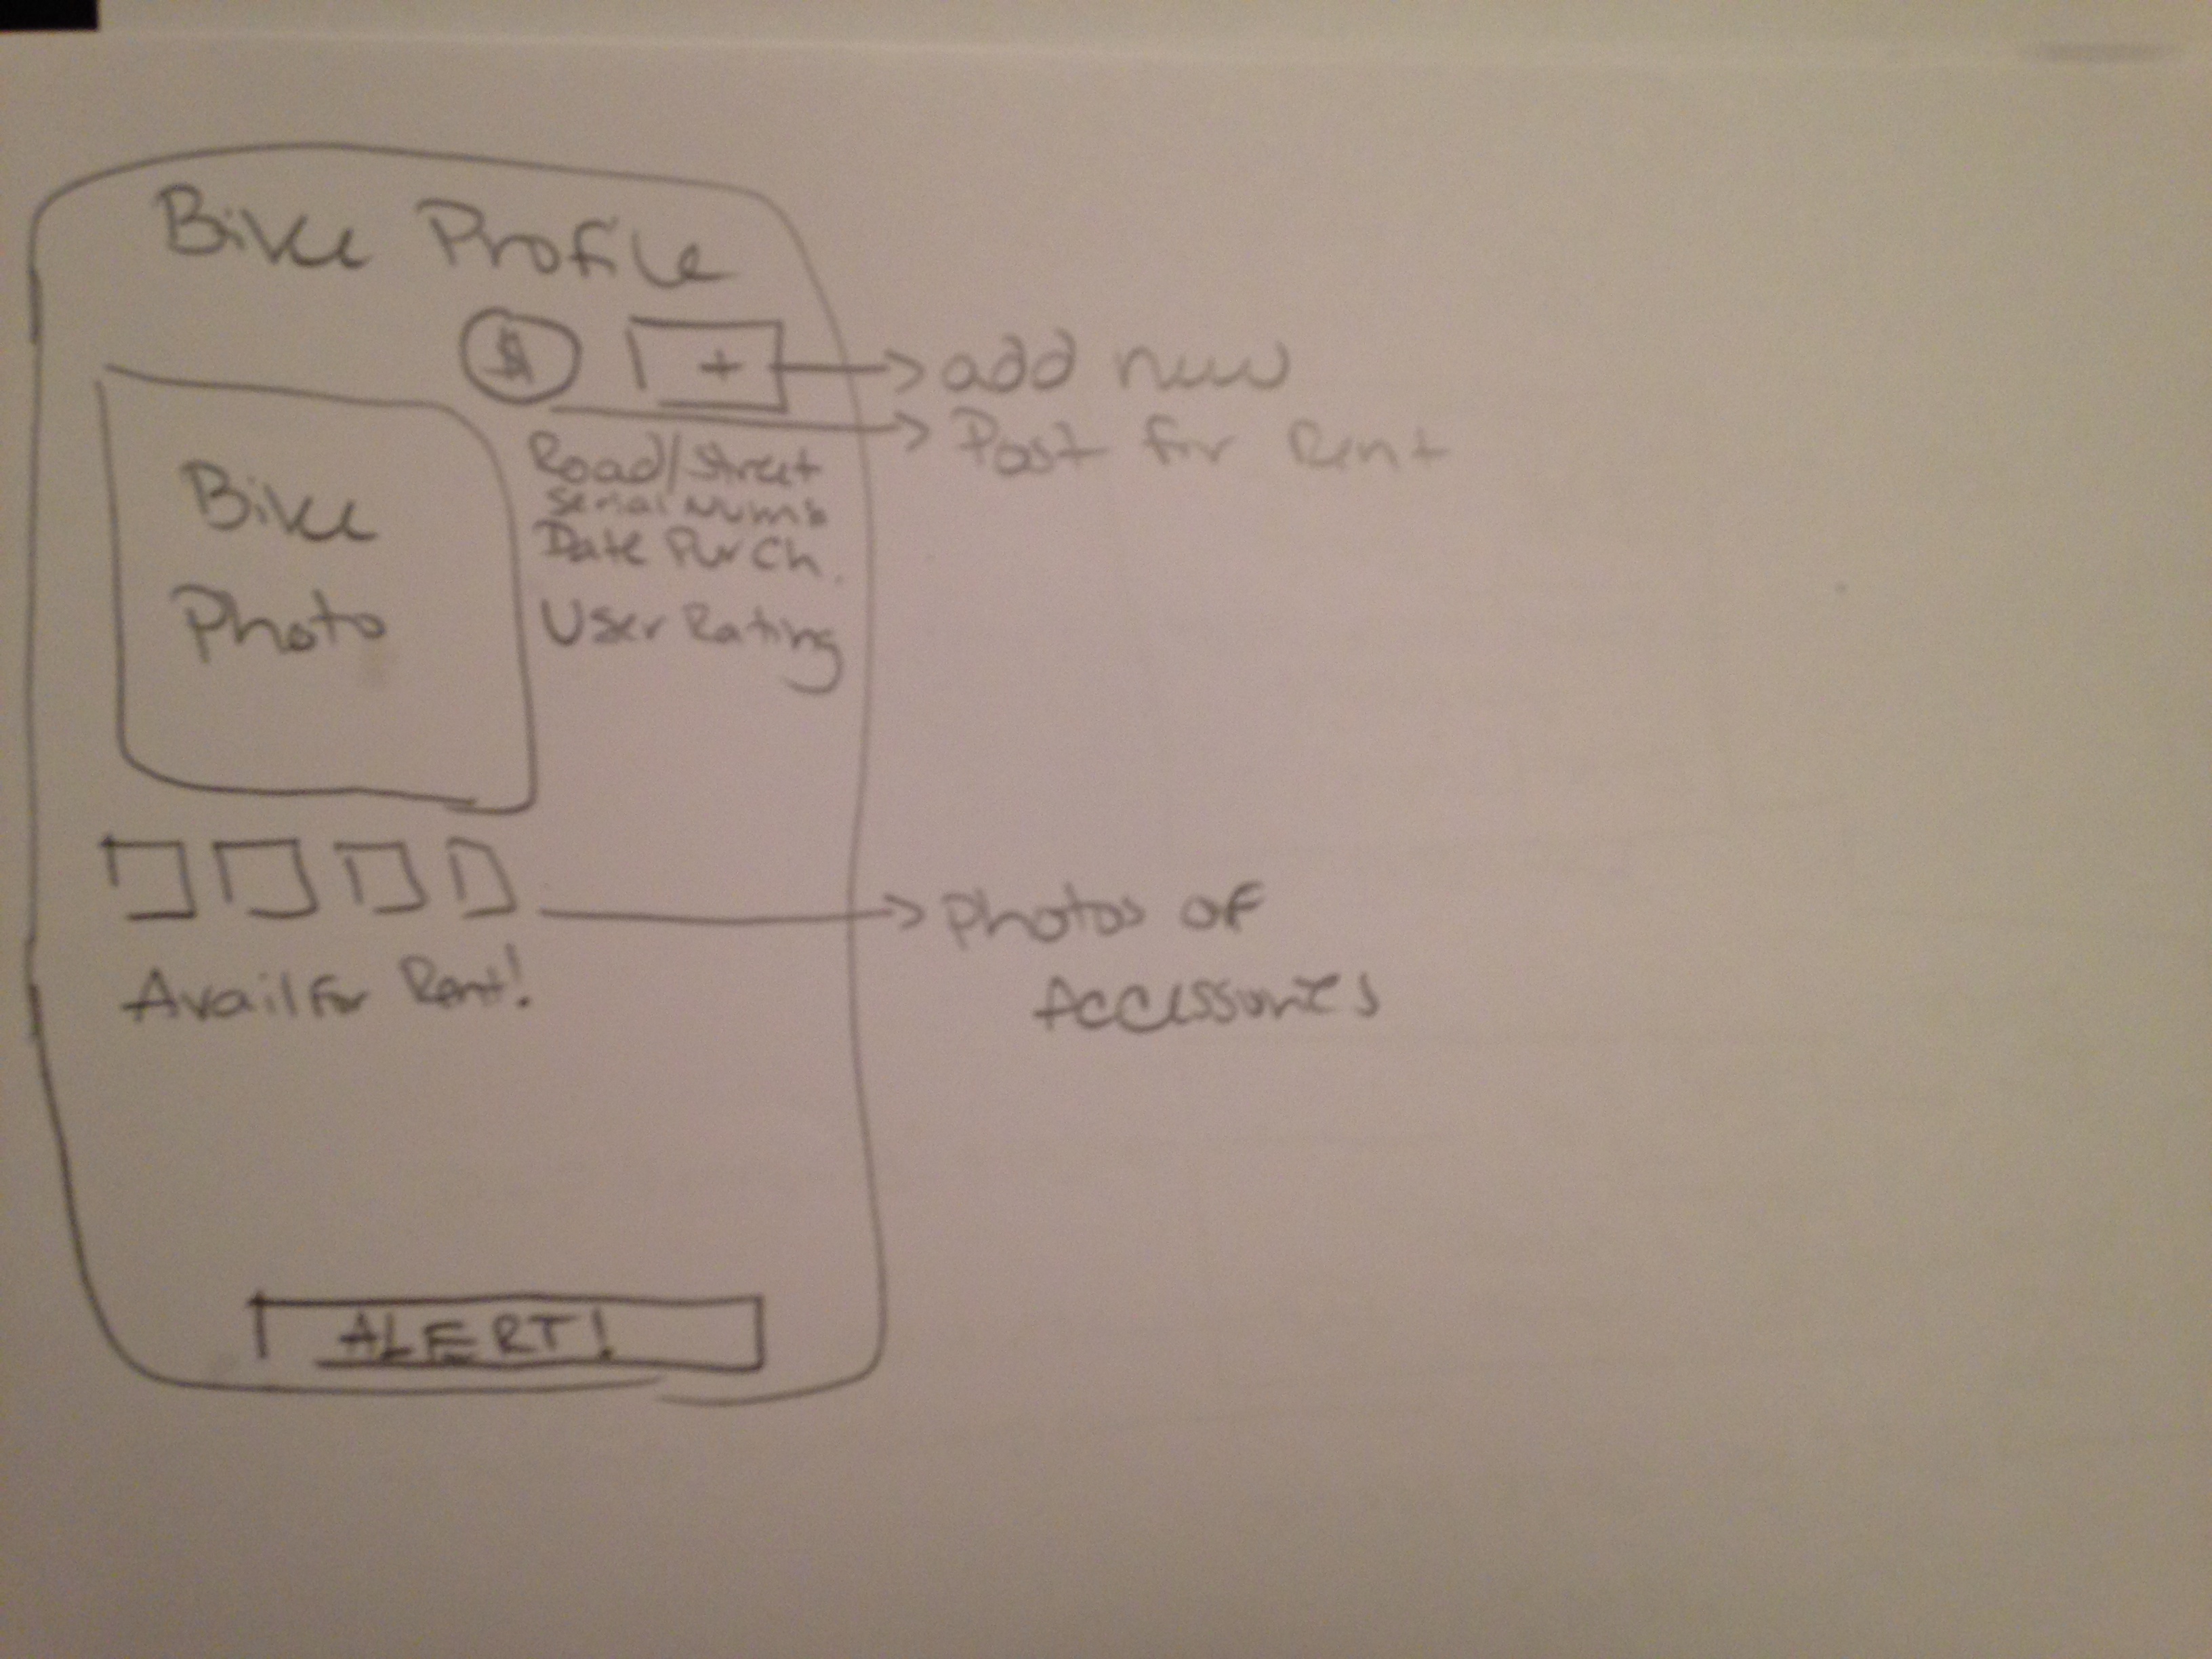 Bike Profile
$
+
→ add new
→ Post for Rent
Bike
Photo
Road/Street
Serial Numb
Date Purch.
User Rating
→ Photos of
Accessories
Avail for Rent!
ALERT!